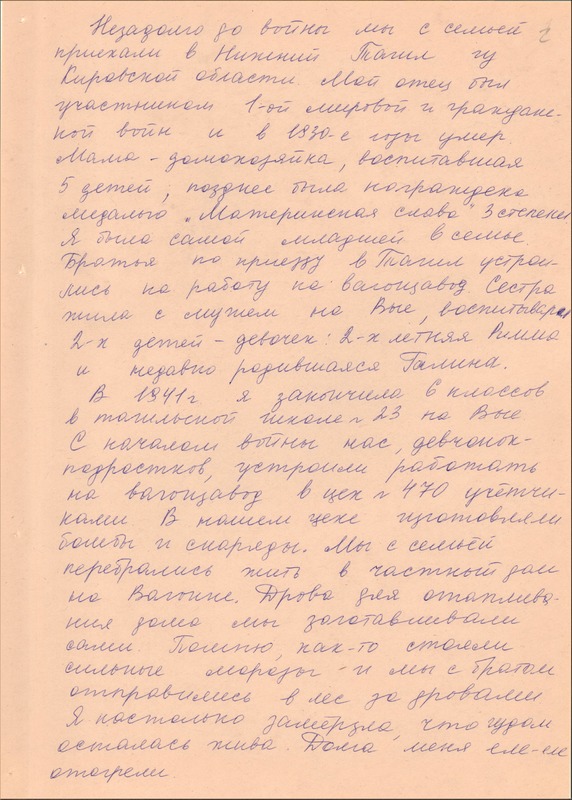 Незадолго до войны мы с семьёй
приехали в Нижний Тагил из
Кировской области. Мой отец был
участником 1-ой мировой и граждан-
ской войн и в 1930-е годы умер.
Мама - домохозяйка, воспитавшая
5 детей, позднее была награждена
медалью „Материнская слава" 3 степени
Я была самой младшей в семье.
Братья по приезду в Тагил устрои-
лись на работу на вагонзавод. Сестра
жила с мужем на Вые, воспитывая
2-х детей - девочек: 2-х летняя Римма
и недавно родившаяся Галина.
В 1941 г я закончила 6 классов
в тагильской школе № 23 на Вые
С началом войны нас, девчонок-
подростков, устроили работать
на вагонзавод в цех № 470 учётчи-
ками. В нашем цехе изготовляли
бомбы и снаряды. Мы с семьёй
перебрались жить в частный дом
на Вагонке. Дрова для отаплива-
ния дома мы заготавливали
сами. Помню, как-то стояли
сильные морозы - и мы с братом
отправились в лес за дровами
Я настолько замёрзла, что чудом
осталась жива. Дома меня еле-еле
отогрели.